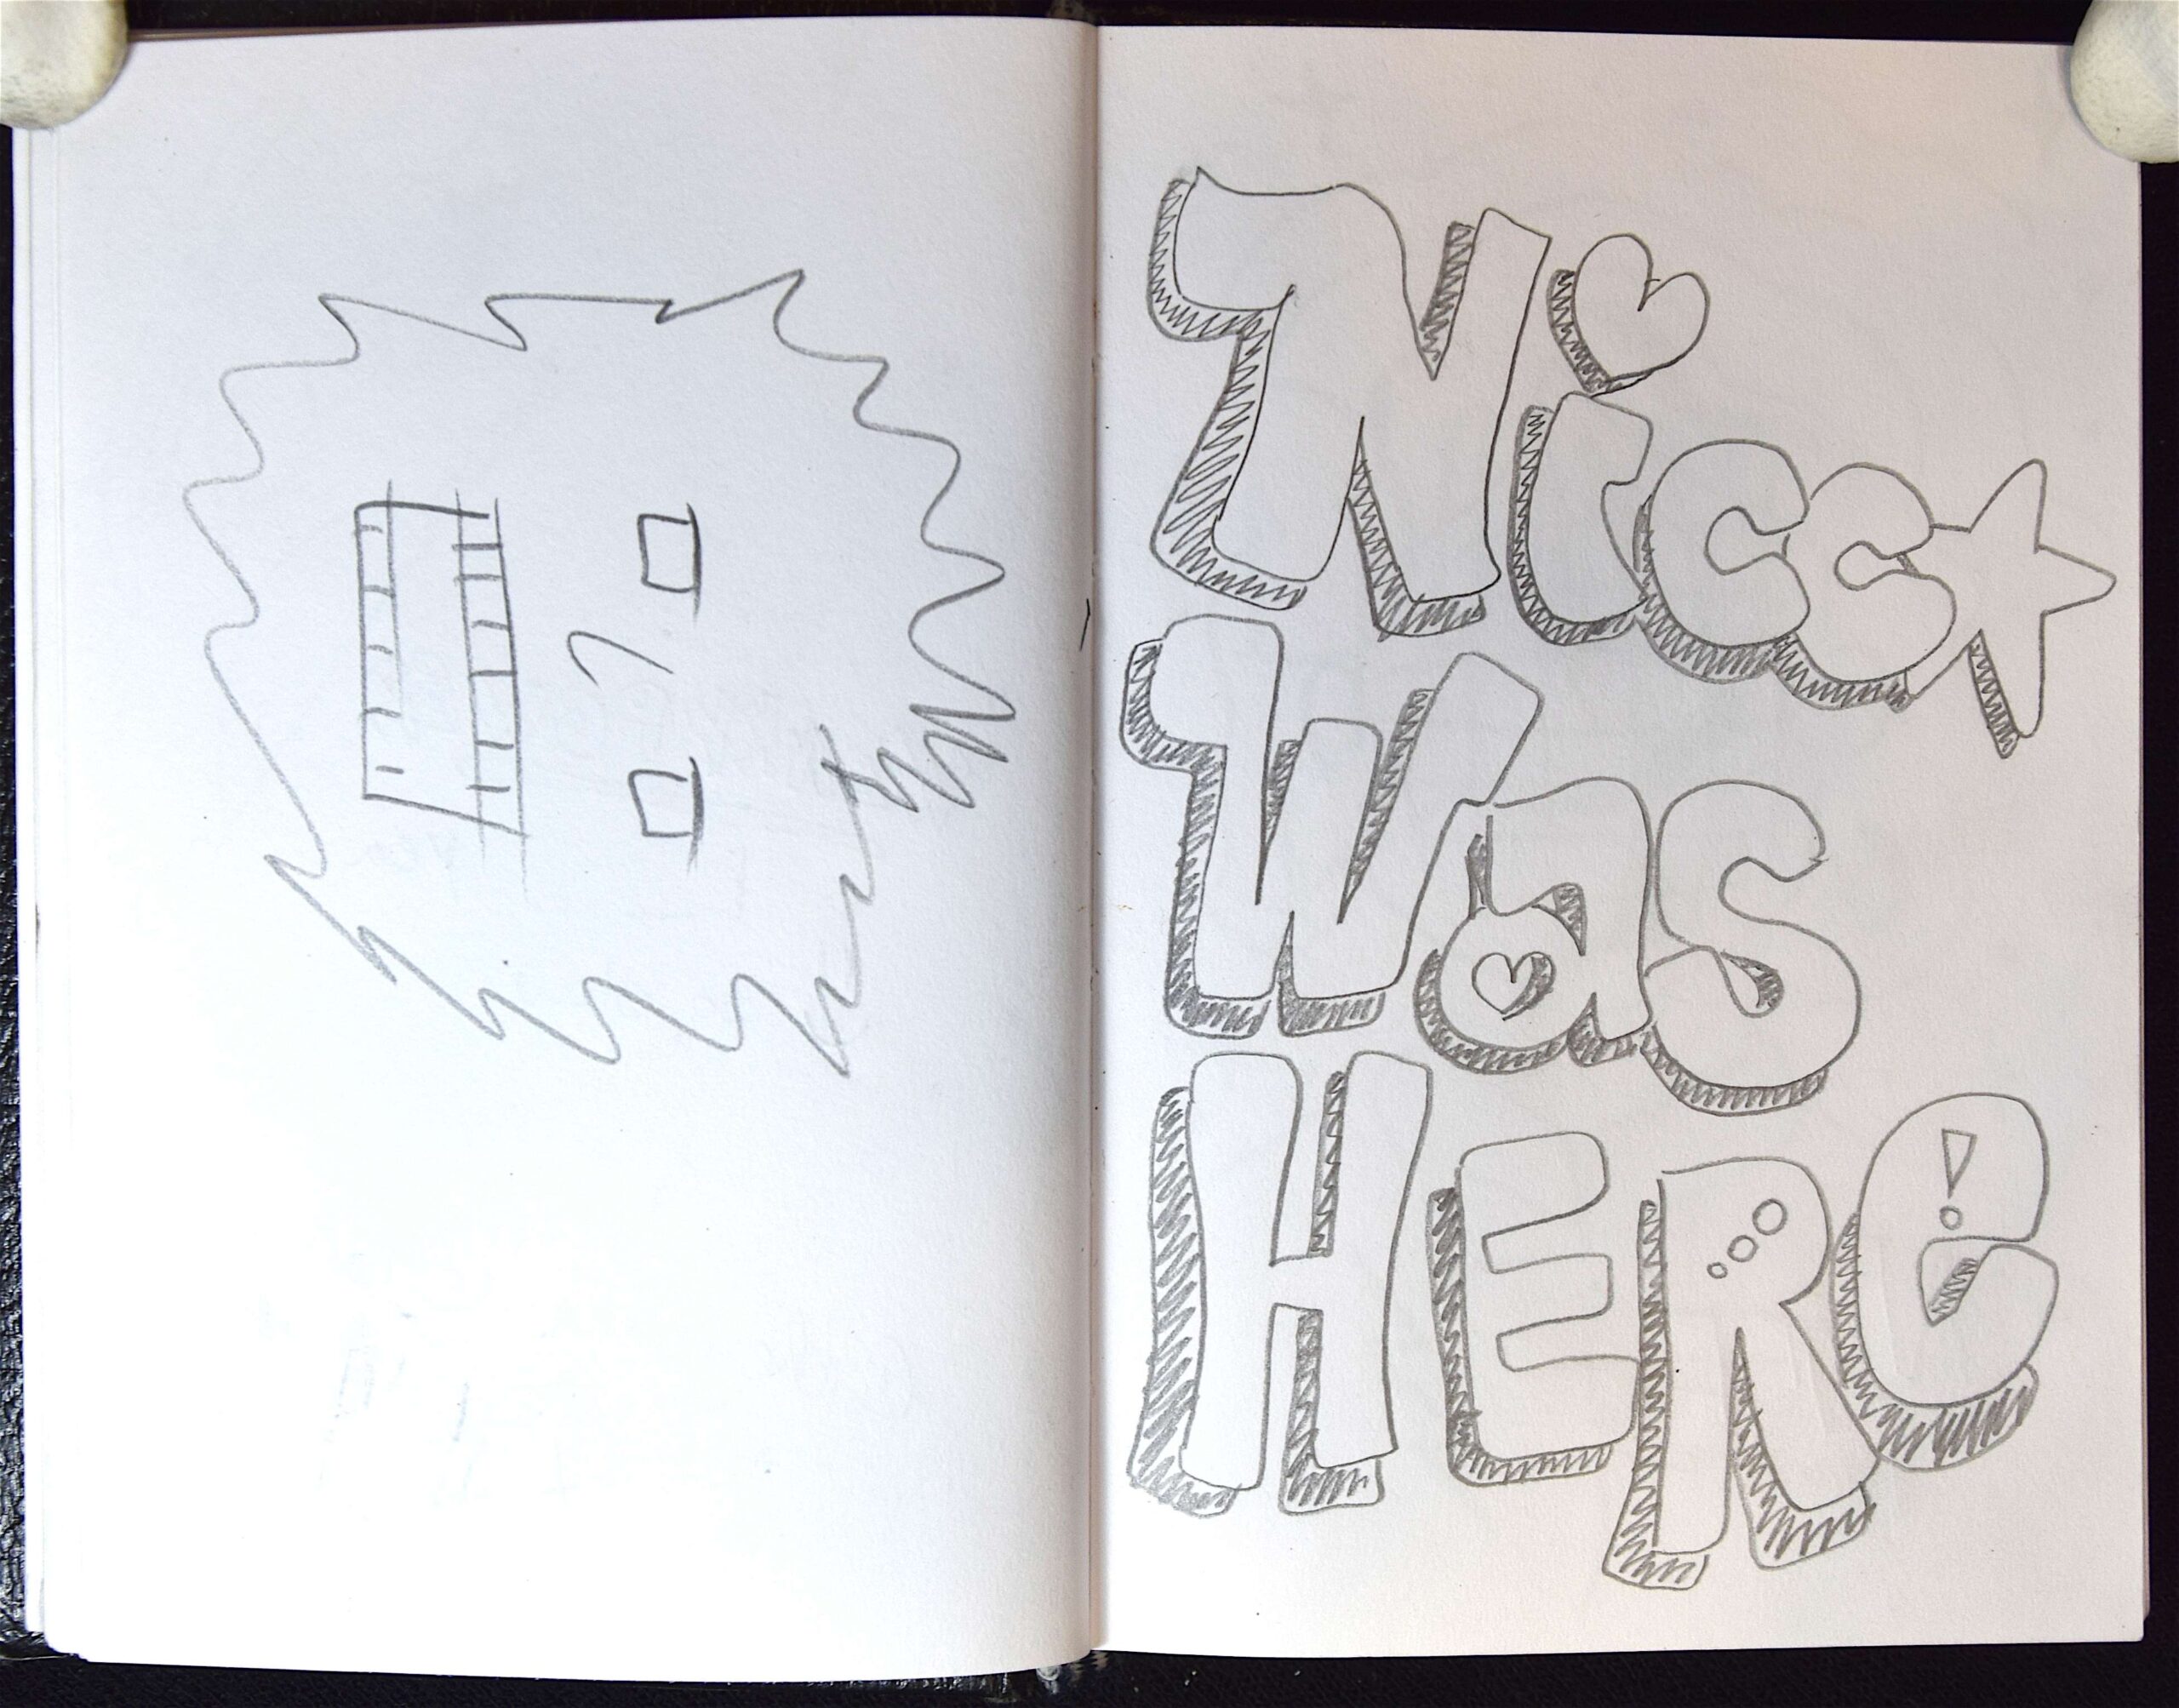 Nicc
Was
HERe!